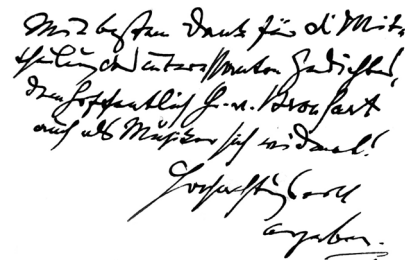 Mit bestem Dank für d. Mit-
theilung des interessanten Gedichtes,
dem hoffentlich Hr. v. Bronsart
auch als Musiker sich widmet!
Hochachtungsvoll
ergeben